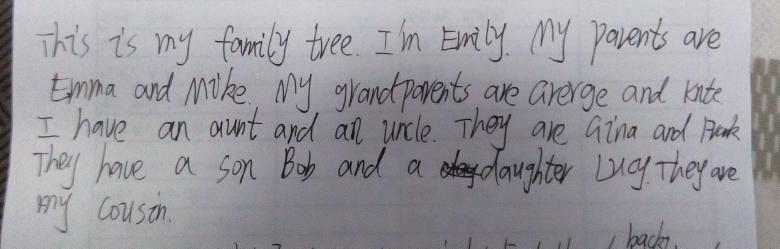 This is my family tree. I'm Emily. My parents are
Emma and Mike. My grandparents are Grerge and Kate
I have an aunt and an uncle. They are Gina and Frank
They have a son Bob and a daughter Lucy. They are
my cousin.
back